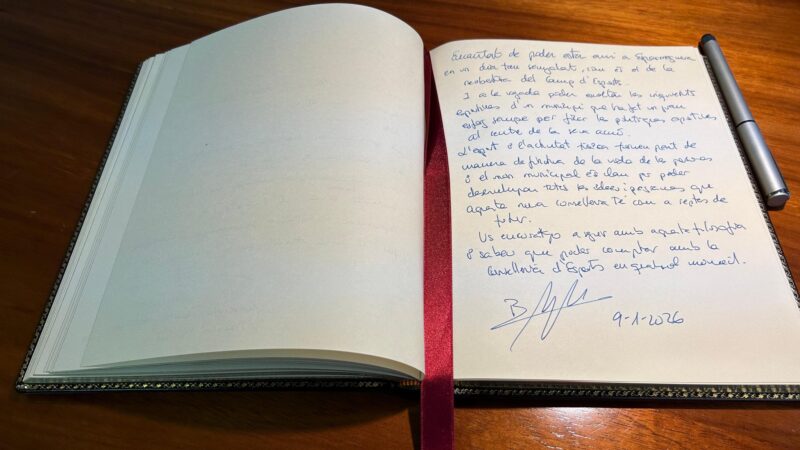 Encantat de poder estar avui a Esparreguera
en un dia tan senyalat, com és el de la
reobertura del Camp d'Esports.
I a la vegada poder escoltar les inquietuds
esportives d'un municipi que ha fet un gran
esforç sempre per fixar les polítiques esportives
al centre de la seva acció.
L'esport i l'activitat física formen part de
manera de la vida de les persones
i el món municipal és clau per poder
desenvolupar totes les idees i programes que
aquesta nova conselleria té com a reptes de
futur.
Us encoratjo a seguir amb aquesta filosofia
i sabeu que podeu comptar amb la
Conselleria d'Esports en qualsevol moment.
9-1-2026